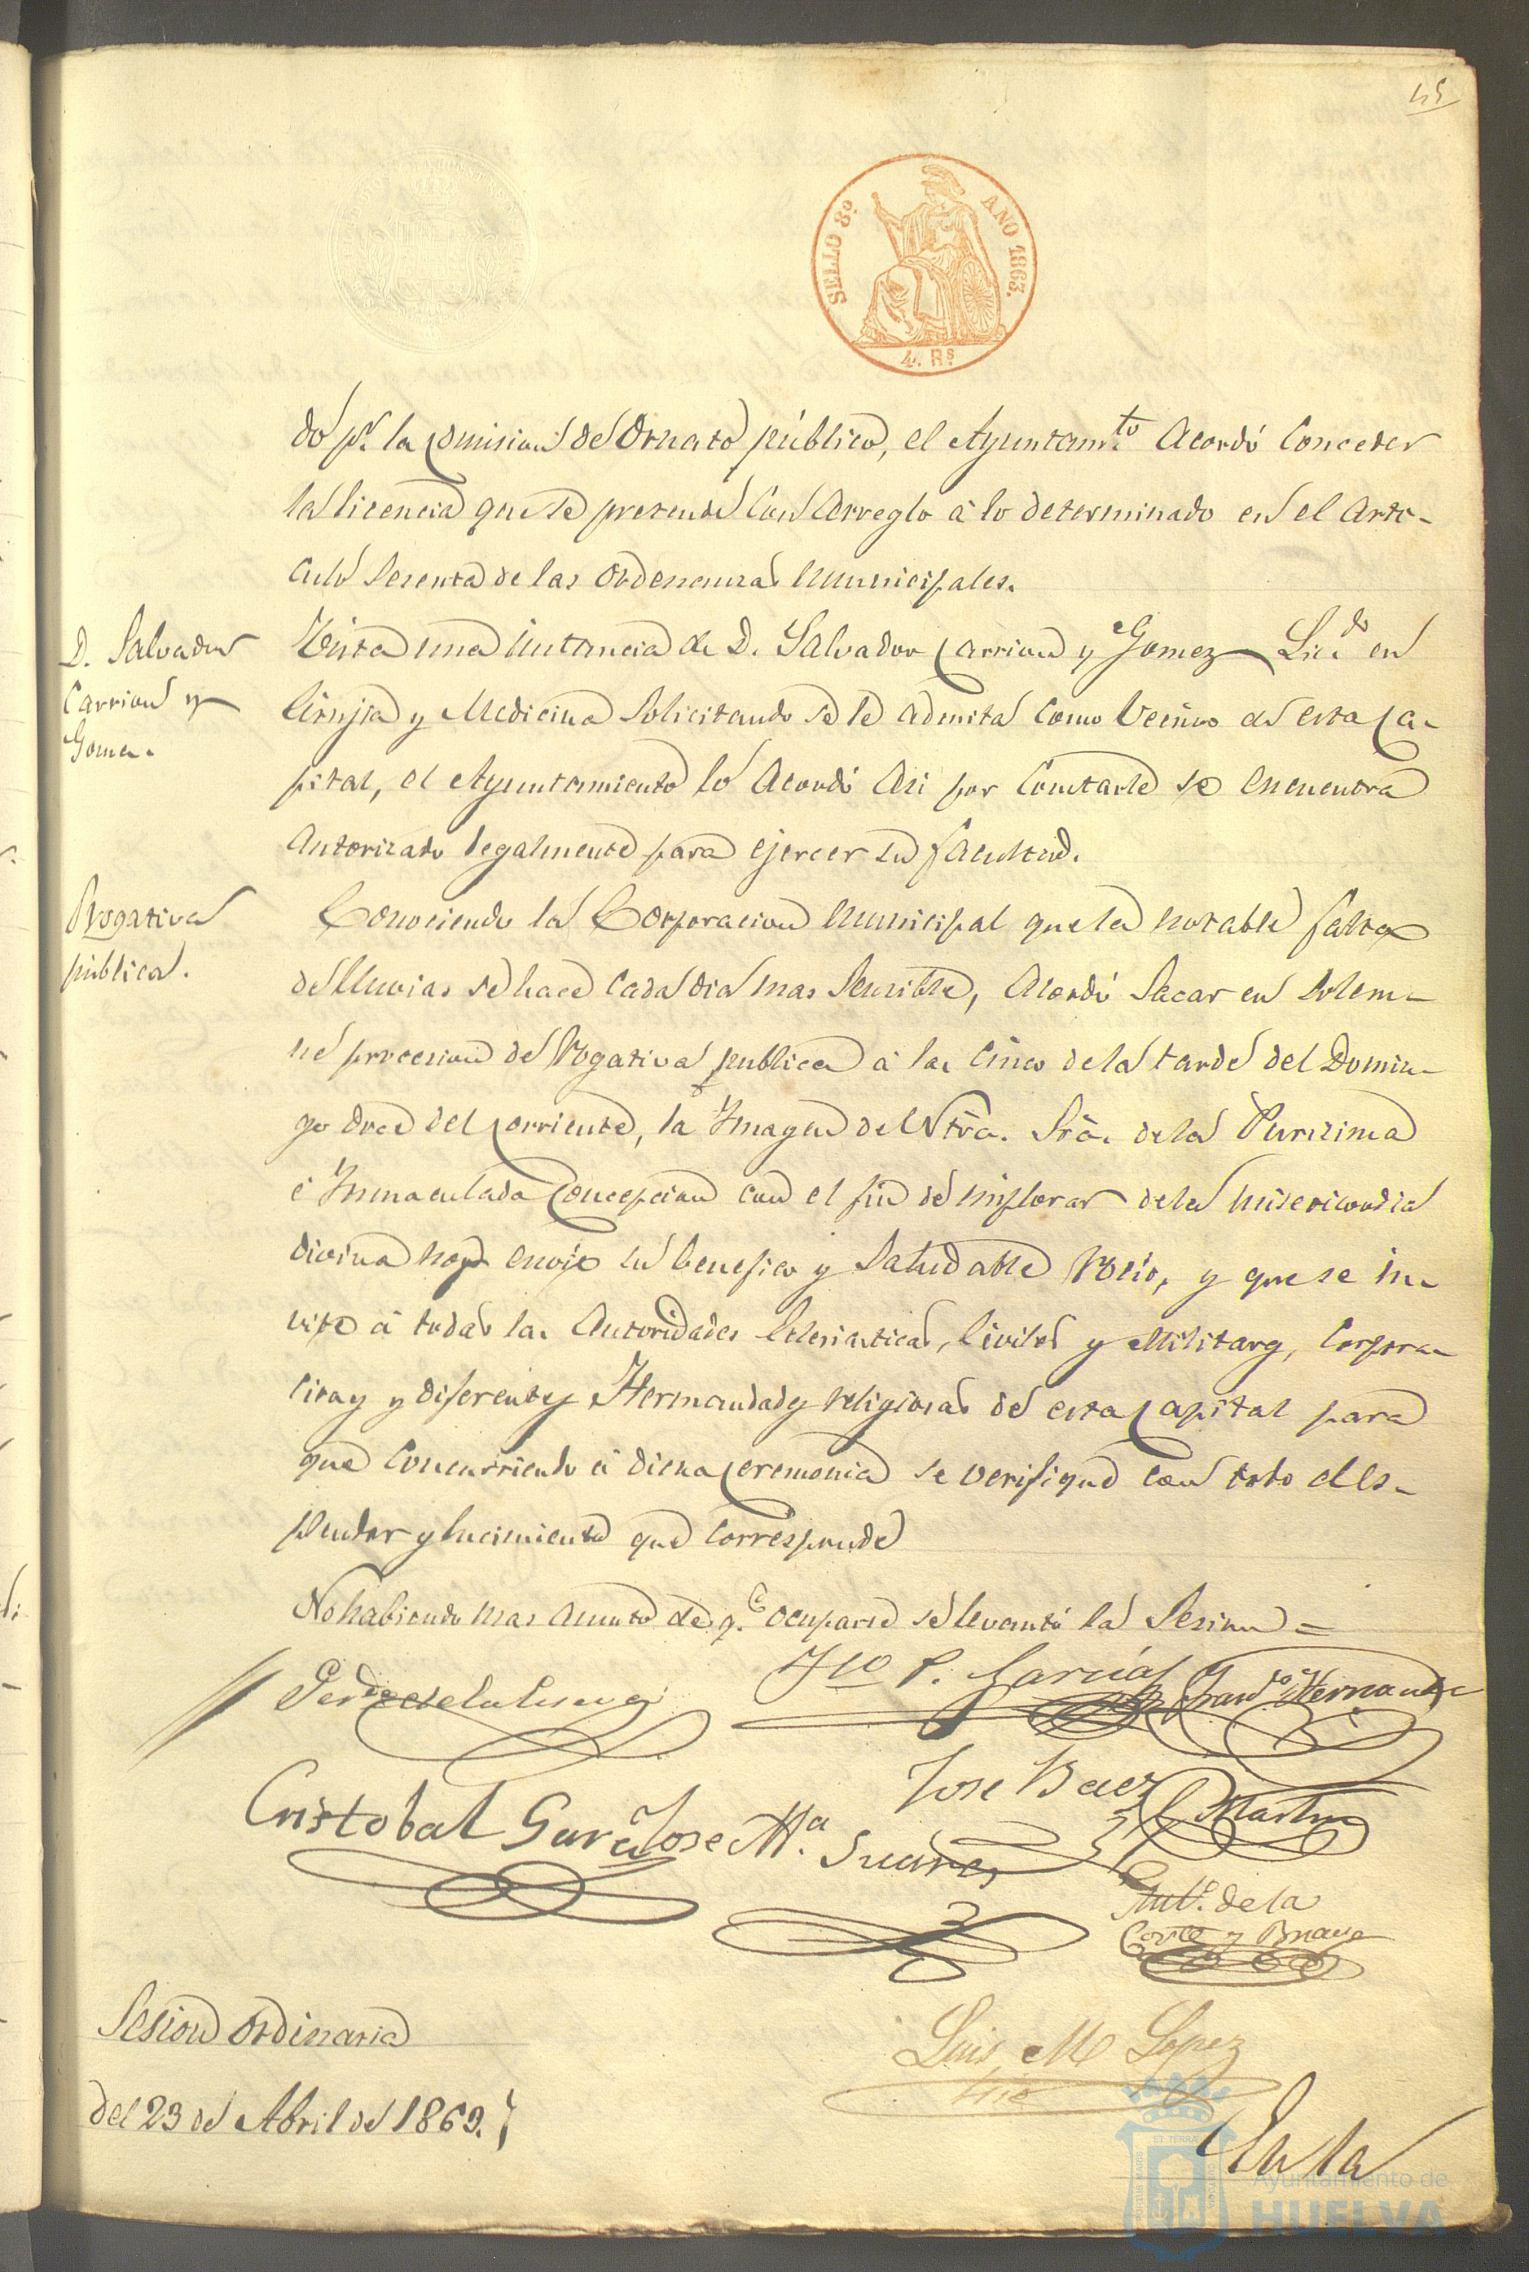 45
SELLO 8º AÑO 1863.
4. Rs
do pr. la Comision de Ornato público, el Ayuntamto. Acordó Conceder
la licencia que se pretende Con Arreglo á lo determinado en el Arti-
culo Sesenta de las Ordenanzas Municipales.
D. Salvador
Carrion y
Gomez.
Vista una instancia de D. Salvador Carrion y Gomez Licdo. en
Cirujia y Medicina Solicitando se le admita Como Vecino de esta Ca-
pital, el Ayuntamiento lo Acordó Asi por Constarle se encuentra
Autorizado legalmente para ejercer su facultad.
Rogativa
pública.
Conociendo la Corporacion Municipal que la notable falta
de lluvias se hace Cada dia mas Sensible, Acordó Sacar en Solem-
ne procesion de Rogativa publica á las Cinco de la tarde del Domin-
go doce del Corriente, la Imagen de Ntrã. Srã. de la Purisima
é Inmaculada Concepcion con el fin de implorar de la misericordia
divina nos envie su benefico y Saludable Rocio, y que se in-
vite á todas las Autoridades Eclesiasticas, Civiles y Militares, Corpora-
ciones y diferentes Hermandades religiosas de esta Capital para
que Concurriendo á dicha Ceremonia se verifique con todo el es-
plendor y lucimiento que Corresponde
No habiendo mas asunto de qe. ocuparse se levantó la Sesion =
Fco P. Garcia
Franco Hernandez
Jose Baez
Cristobal Garcia
Jose Ma. Suarez
Martin
Anto. de la
Corte y Bnave
Luis M Lopez
Srio
Sesion Ordinaria
del 23 de Abril de 1863.
En la
Ayuntamiento de
HUELVA